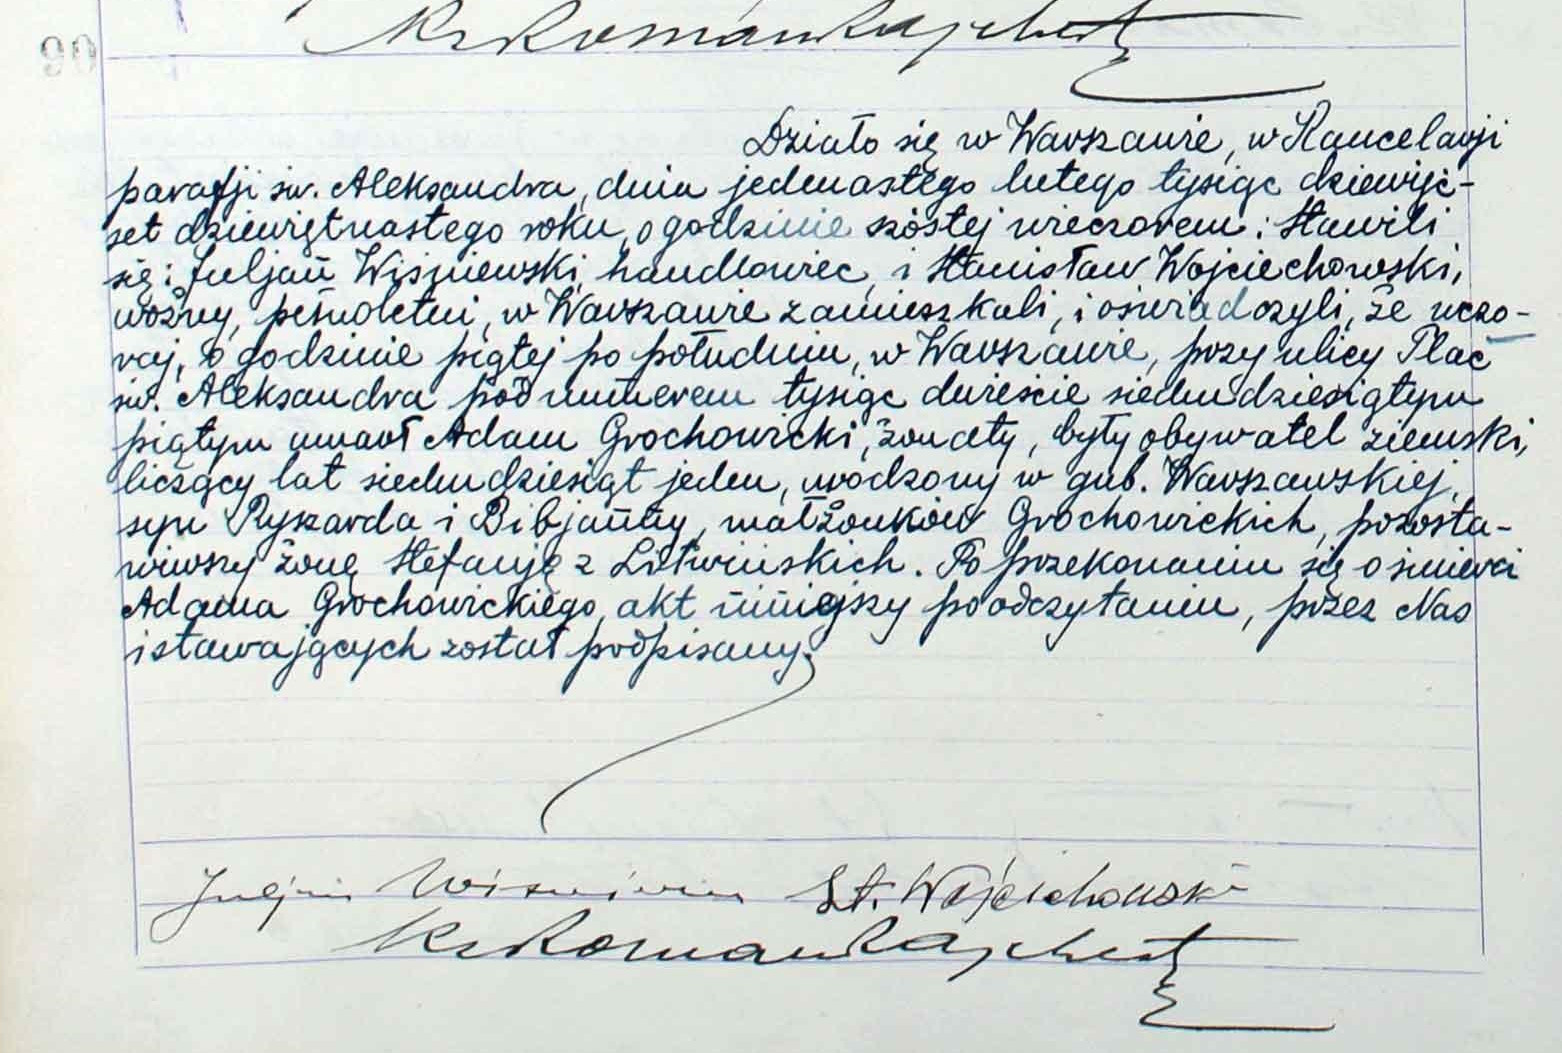 90
Ks Roman Rajchert
Działo się w Warszawie, w Kancelarji
parafji św. Aleksandra, dnia jedenastego lutego tysiąc dziewięć-
set dziewiętnastego roku, o godzinie szóstej wieczorem: Stawili
się: Juljan Wiśniewski, handlowiec, i Stanisław Wojciechowski,
woźny, pełnoletni, w Warszawie zamieszkali, i oświadczyli, że wczo-
raj, o godzinie piątej po południu, w Warszawie, przy ulicy Plac
św. Aleksandra pod numerem tysiąc dwieście siedmdziesiątym
piątym umarł Adam Grochowicki, żonaty, były obywatel ziemski,
liczący lat siedmdziesiąt jeden, urodzony w gub. Warszawskiej,
syn Ryszarda i Bibjanny, małżonków Grochowickich, pozosta-
wiwszy żonę Stefanję z Litwińskich. Po przekonaniu się o śmierci
Adama Grochowickiego, akt niniejszy po odczytaniu, przez Nas
i stawających został podpisany.
Juljan Wiśniewski St. Wojciechowski
Ks Roman Rajchert